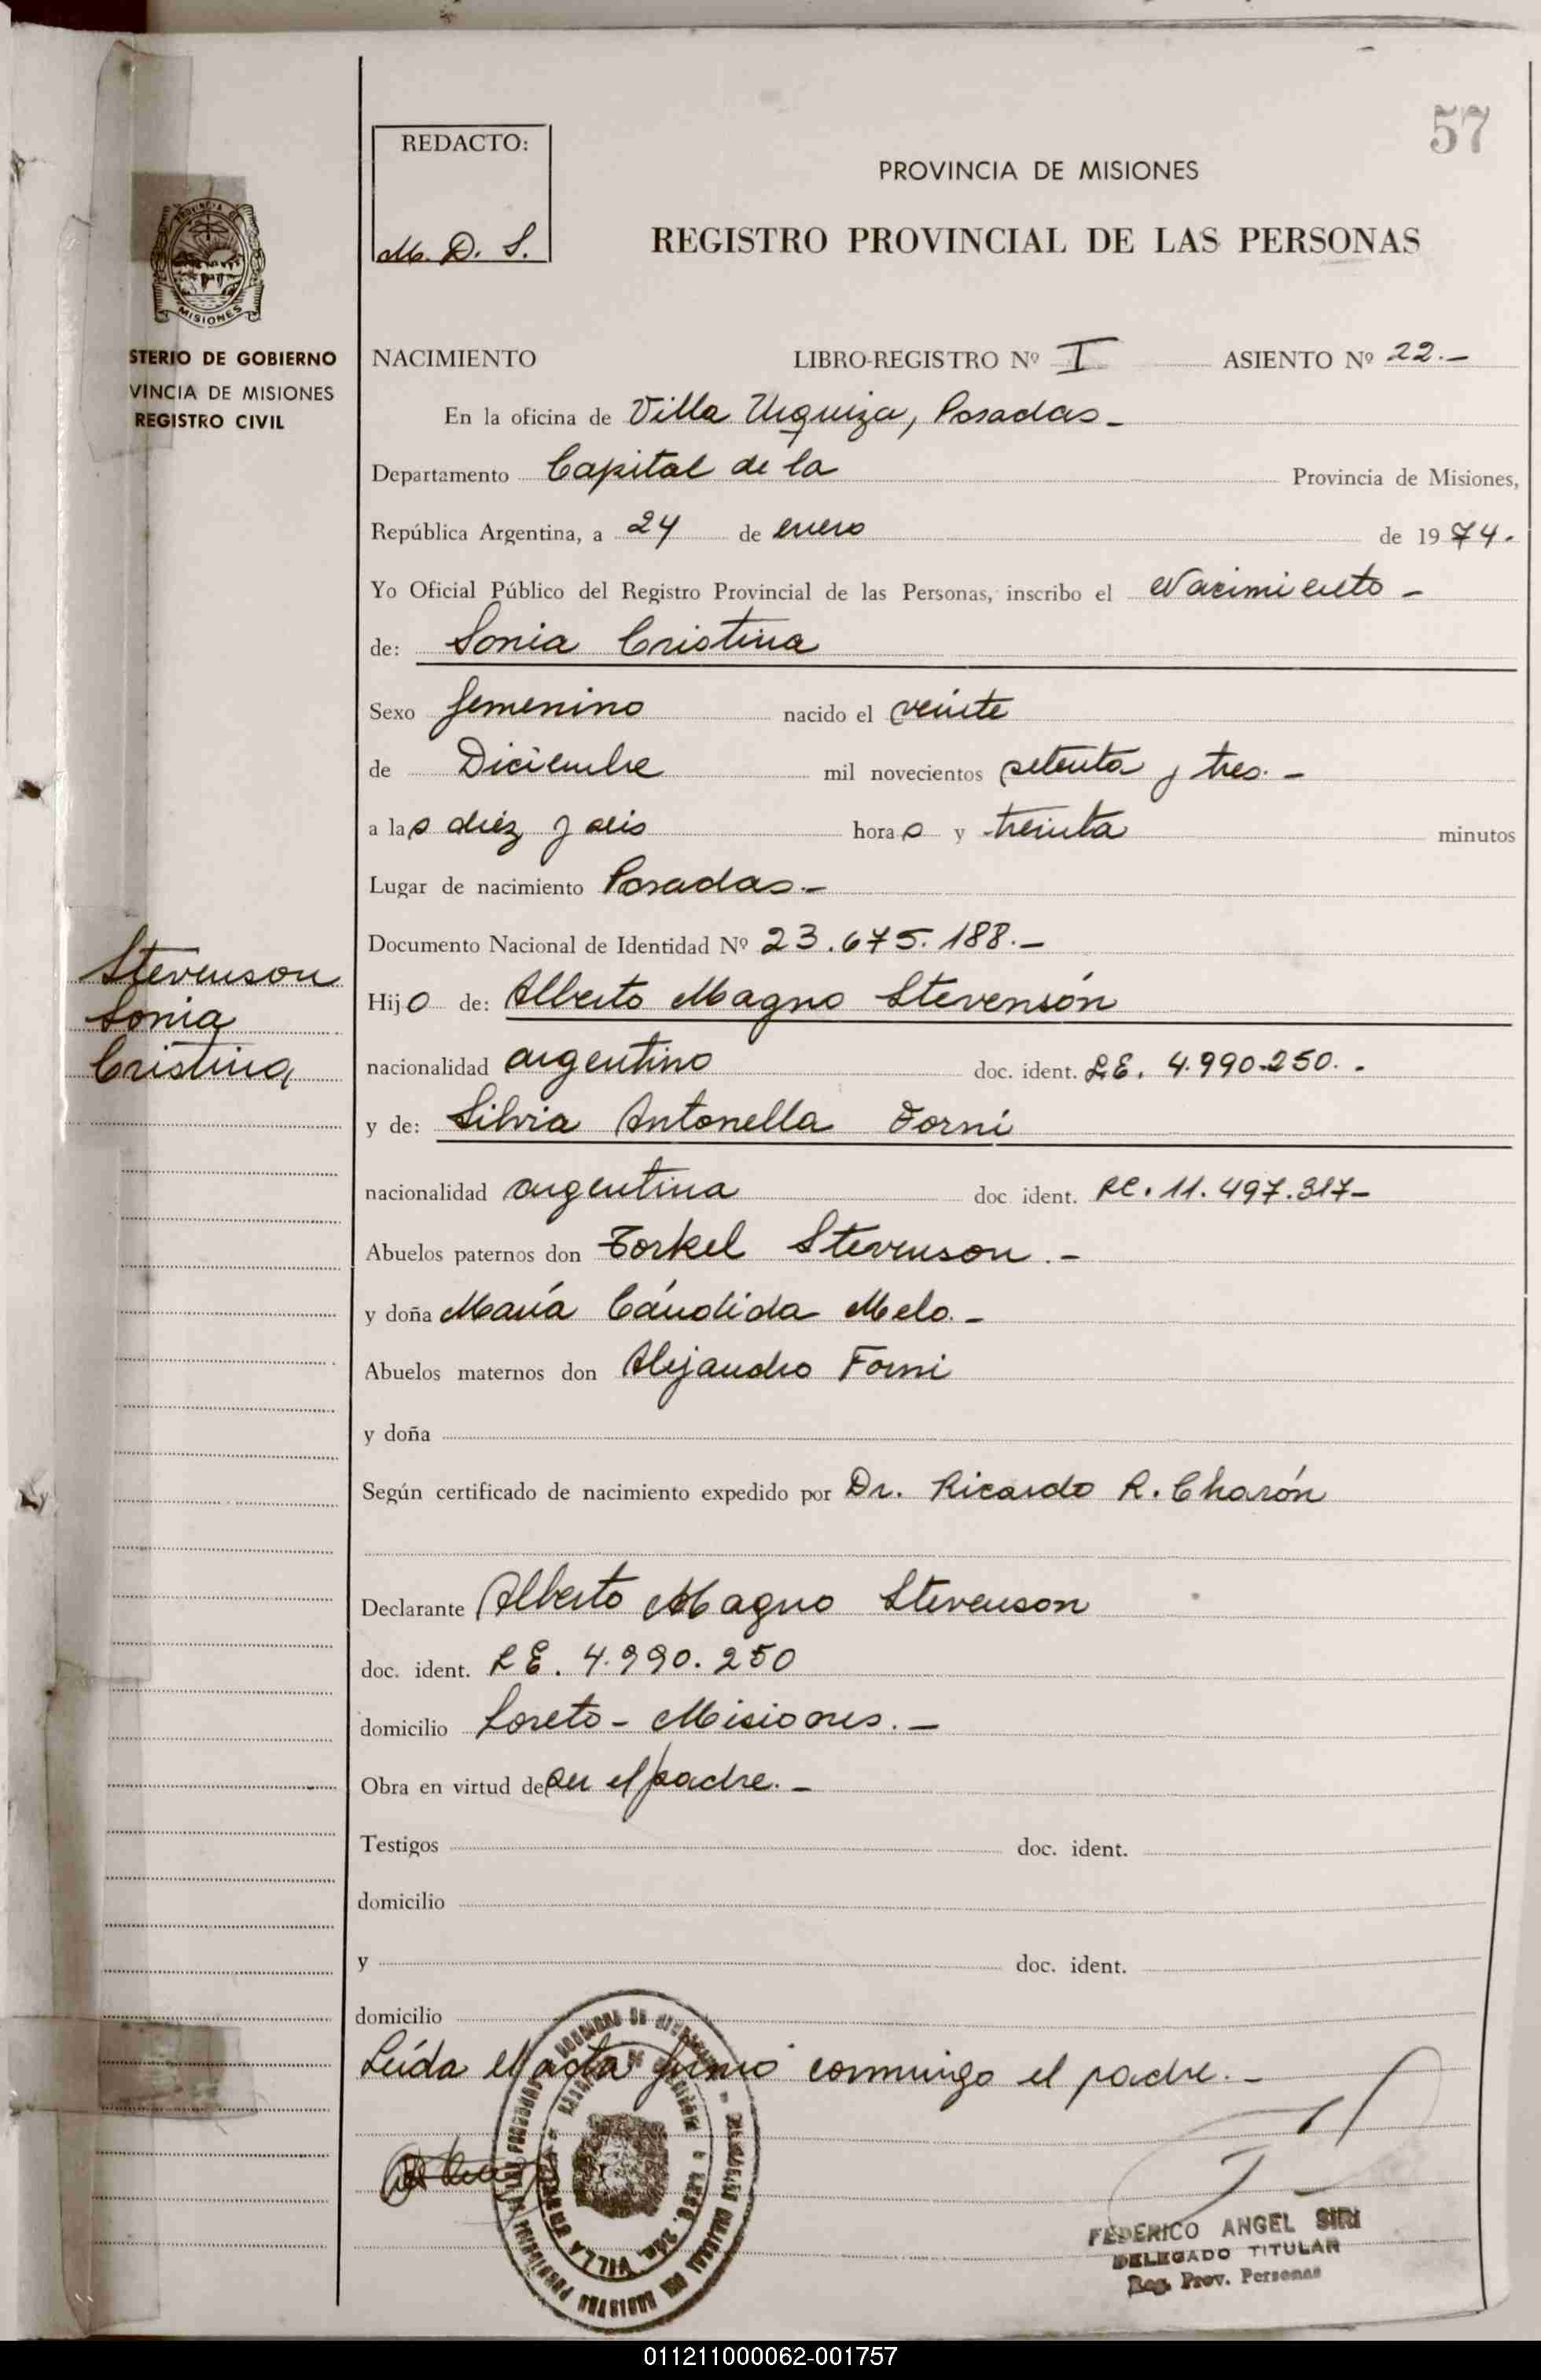 57
REDACTO:
M. D. S.
PROVINCIA DE MISIONES
REGISTRO PROVINCIAL DE LAS PERSONAS
PROVINCIA DE
MISIONES
STERIO DE GOBIERNO
VINCIA DE MISIONES
REGISTRO CIVIL
NACIMIENTO LIBRO-REGISTRO Nº I ASIENTO Nº 22.-
En la oficina de Villa Urquiza, Posadas-
Departamento Capital de la Provincia de Misiones,
República Argentina, a 24 de enero de 1974.
Yo Oficial Público del Registro Provincial de las Personas, inscribo el Nacimiento-
de: Sonia Cristina
Sexo femenino nacido el veinte
de Diciembre mil novecientos setenta y tres.-
a las diez y seis horas y treinta minutos
Lugar de nacimiento Posadas.-
Documento Nacional de Identidad Nº 23.675.188.-
Stevenson
Sonia
Cristina
Hijo de: Alberto Magno Stevensón
nacionalidad argentino doc. ident. L.E. 4.990.250.-
y de: Silvia Antonella Forni
nacionalidad argentina doc. ident. LC. 11.497.317-
Abuelos paternos don Torkel Stevenson.-
y doña María Cándida Melo.-
Abuelos maternos don Alejandro Forni
y doña
Según certificado de nacimiento expedido por Dr. Ricardo R. Charón
Declarante Alberto Magno Stevenson
doc. ident. L E. 4.990.250
domicilio Loreto - Misiones.-
Obra en virtud de ser el padre.-
Testigos doc. ident.
domicilio
y doc. ident.
domicilio
Leída el acta firmó conmigo el padre.-
VILLA
FEDERICO ANGEL SIRI
DELEGADO TITULAR
Reg. Prov. Personas
011211000062-001757